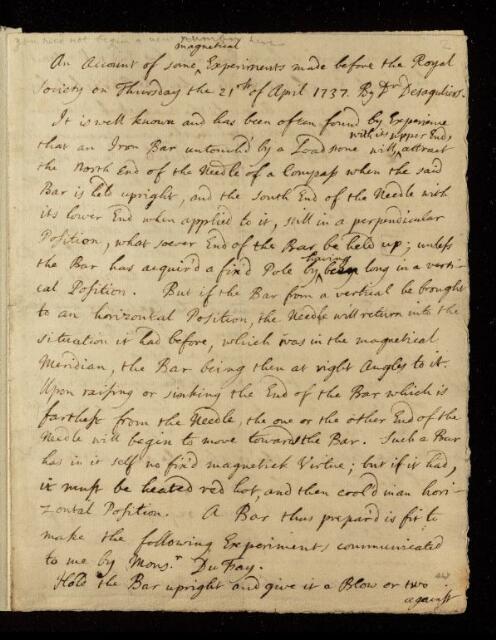 you need not begin a new number here
2
magnetical
An Account of some ^ Experiments made before the Royal
Society on Thursday the 21st. of April 1737. By Dr Desaguliers.
It is well known and has been often found by Experience
with its upper End,
that an Iron Bar untouch'd by a Loadstone will ^ attract
the North End of the Needle of a Compass when the said
Bar is held upright, and the South End of the Needle with
its lower End when applied to it, still in a perpendicular
Position, what soever End of the Bar be held up; unless
having
the Bar has acquir'd a fix'd Pole by ^ been long in a verti-
cal Position. But if the Bar from a vertical be brought
to an horizontal Position, the Needle will return into the
situation it had before, which was in the magnetical
Meridian, the Bar being then at right Angles to it.
Upon raising or sinking the End of the Bar which is
farthest from the Needle, the one or the other End of the
Needle will begin to move towards the Bar. Such a Bar
has in it self no fix'd magnetick Virtue; but if it had,
it must be heated red hot, and then cool'd in an hori-
zontal Position. A Bar thus prepar'd is fit to
make the following Experiments communicated
to me by Monsr. Du Fay.
Hold the Bar upright and give it a Blow or two
against